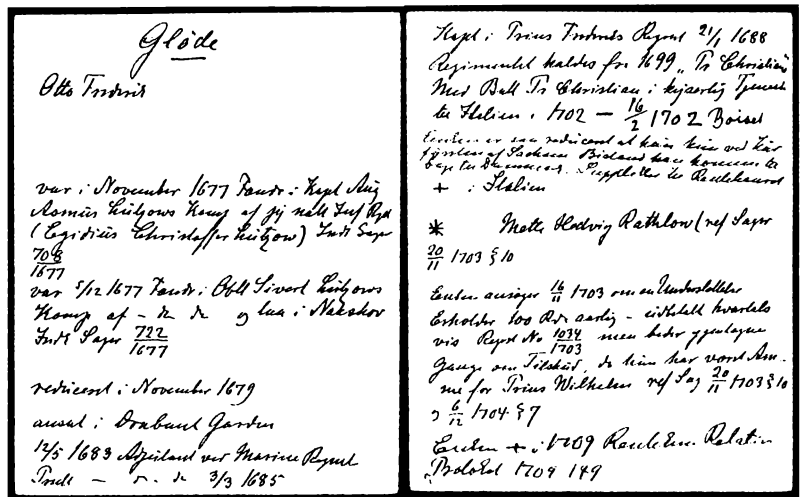 Glöde
Otto Frederik
var i November 1677 Fendr. i Kapt Aug
Asmus Lützows Komp af jy natl Inf Rgt
(Egidius Christoffer Lützow) Indk Sager
708
1677
var 5/12 1677 Fendr. i Obll Sivert Lützows
Komp af - do do og laa i Nakskov
Indk Sager 722
1677
reduceret i November 1679
ansat i Drabant Garden
12/5 1683 Adjutant ved Marine Regmt
- do. do 3/3 1685
Kapt i Prins Frederiks Regmt 21/1 1688
Regimentet kaldes fra 1699 „Pr Christian"
Med Batl Pr Christian i kejserlig Tjeneste
til Italien i 1702 - 16/2 1702
Enken er saa reduceret at hun kun ved Kur
fyrsten af Sachsens Bistand kan komme til
bage til Danmark. Supplikker til Rentekamret
+ i Italien
* Mette Hedvig Rathlow (ref Sager
20/11 1703 § 10
Enken ansøger 16/11 1703 om en Understøttelse
Erholder 100 Rdr aarlig - udbetalt kvartals
vis Regst No 1034/1703 men beder gentagne
Gange om Tilskud, da hun har været Am-
me for Prins Wilhelm ref Sag 20/11 1703 § 10
og 6/12 1704 § 7
Enken + i 1709 Relation
Protokol 1709 149